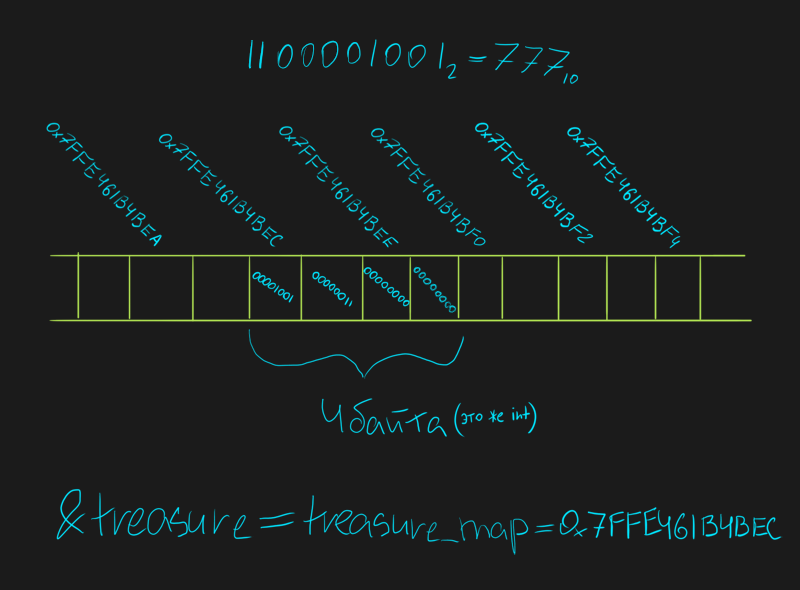 1100001001₂ = 777₁₀
0x7FFE461B4BEA
0x7FFE461B4BEC
0x7FFE461B4BEE
0x7FFE461B4BF0
0x7FFE461B4BF2
0x7FFE461B4BF4
00001001
00000011
00000000
00000000
4 байта (это же int)
&treasure = treasure_map = 0x7FFE461B4BEC